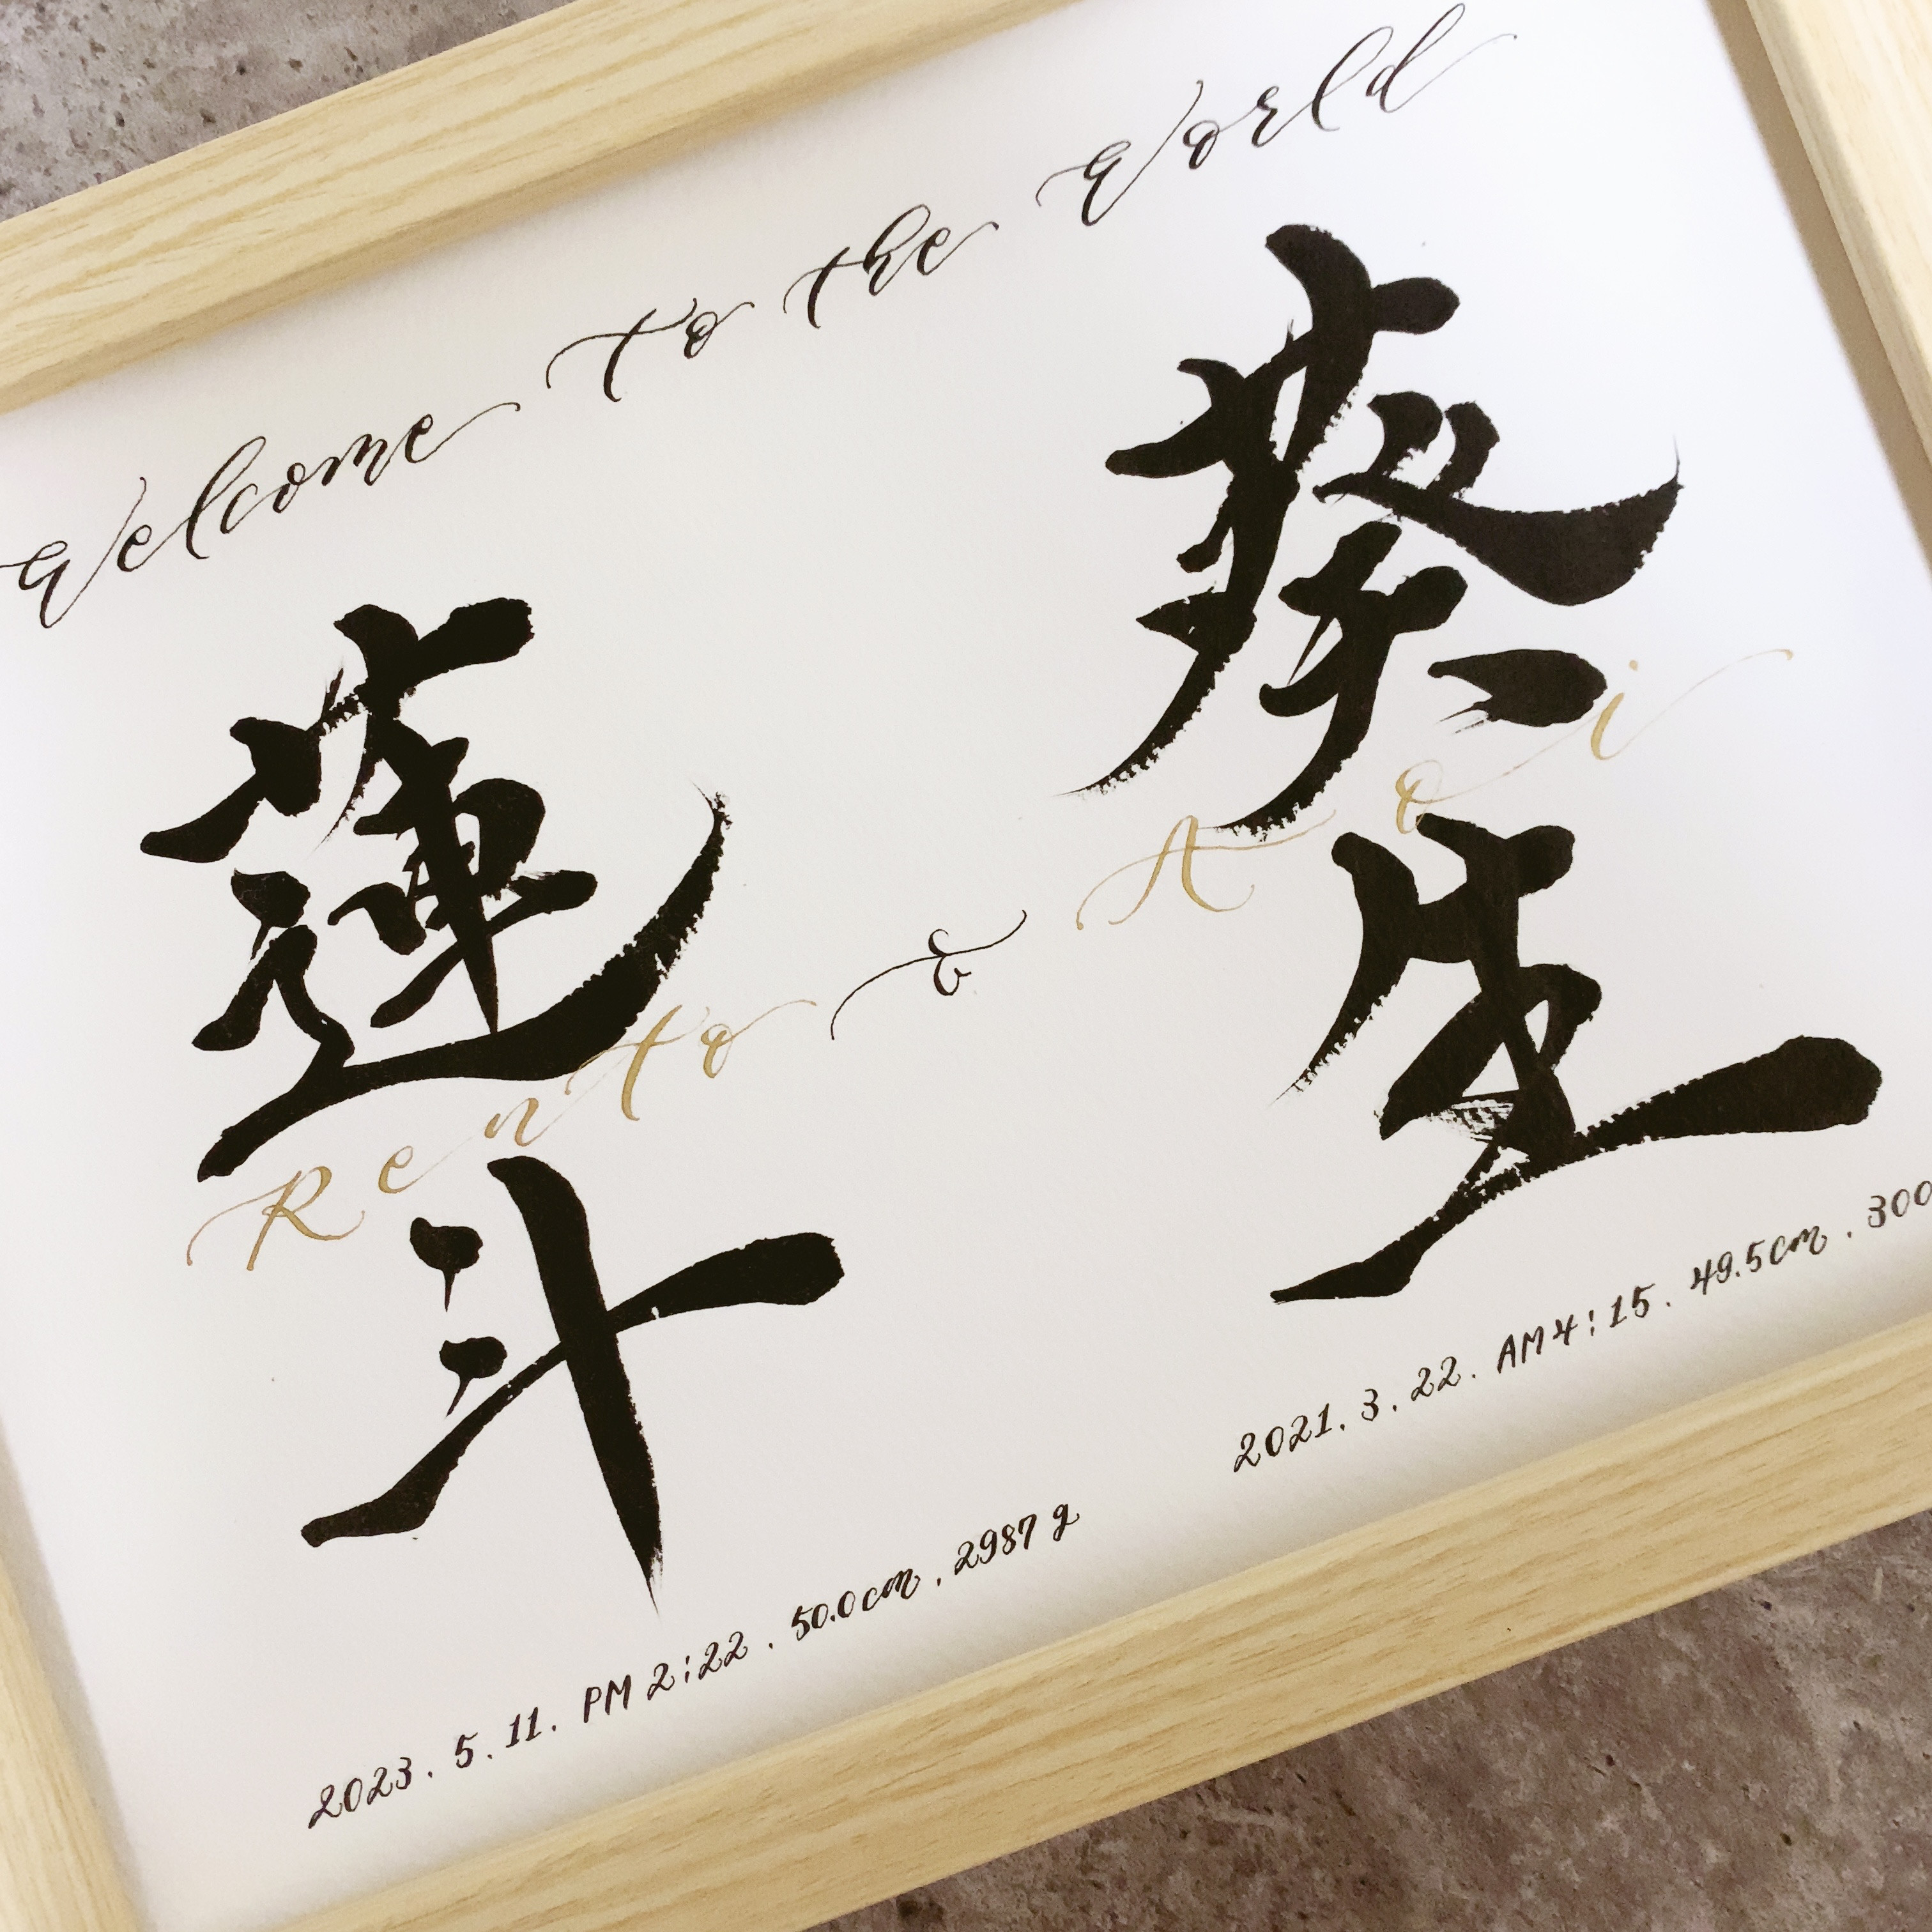 Welcome to the World
葵生
Aoi
&
蓮斗
Rento
2021.3.22. AM4:15. 49.5cm. 300
2023.5.11. PM2:22. 50.0cm. 2987g